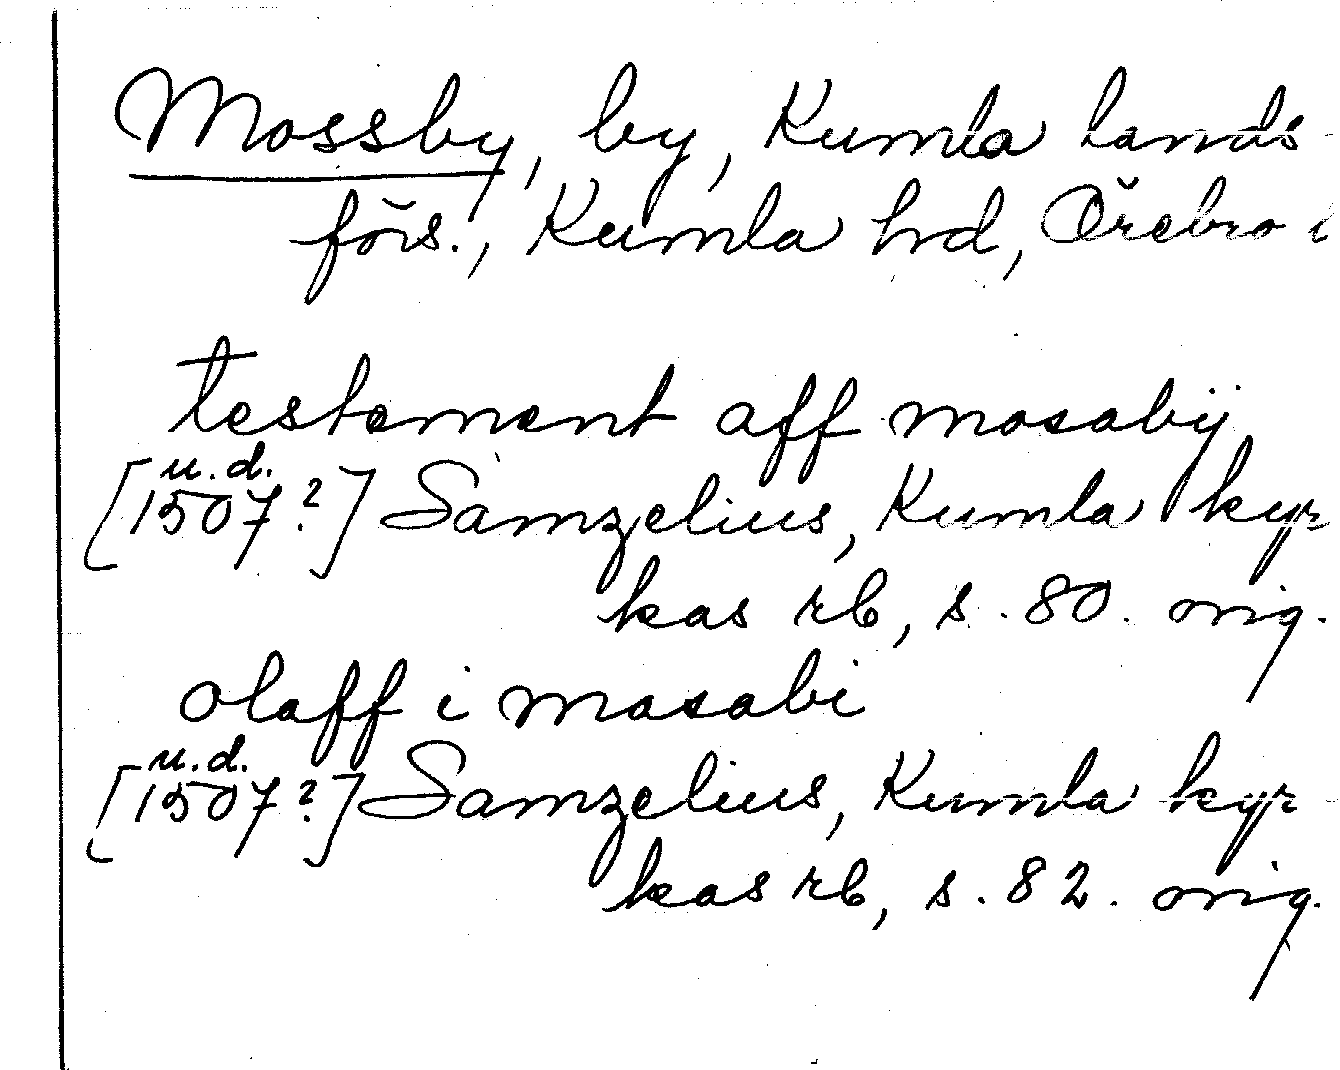 Mossby, by, Kumla lands-
förs., Kumla hd, Örebro l
testament aff mosaby
[u.d. 1507?] Samzelius, Kumla kyr
kas rb, s. 80. orig.
olaff i masabi
[u.d. 1507?] Samzelius, Kumla kyr
kas rb, s. 82. orig.